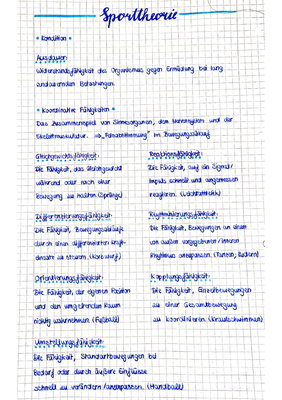 Sporttheorie
• Kondition •
Ausdauer:
Widerstandsfähigkeit des Organismus gegen Ermüdung bei lang
andauernden Belastungen.
• Koordinative Fähigkeiten •
Das Zusammenspiel von Sinnesorganen, dem Nervensystem und der
Skelettmuskulatur. => "Feinabstimmung" im Bewegungsablauf
Gleichgewichtsfähigkeit:
Die Fähigkeit, das Gleichgewicht
während oder nach einer
Bewegung zu halten. (Sprünge)
Reaktionsfähigkeit:
Die Fähigkeit, auf ein Signal/
Impuls schnell und angemessen
reagieren. (Leichtathletik)
Differenzierungsfähigkeit:
Die Fähigkeit, Bewegungsabläufe
durch einen differenzierten Kraft-
einsatz zu steuern. (Korbwurf)
Rhythmisierungsfähigkeit:
Die Fähigkeit, Bewegungen an einem
von außen vorgegebenen/inneren
Rhythmus anzupassen. (Tanzen, Rudern)
Orientierungsfähigkeit:
Die Fähigkeit, die eigenen Position
und den umgebenden Raum
richtig wahrnehmen. (Fußball)
Kopplungsfähigkeit:
Die Fähigkeit, Einzelbewegungen
zu einer Gesamtbewegung
zu koordinieren. (Kraulschwimmen)
Umstellungsfähigkeit:
Die Fähigkeit, Standartbewegungen bei
Bedarf oder durch äußere Einflüsse
schnell zu verändern/anzupassen. (Handball)